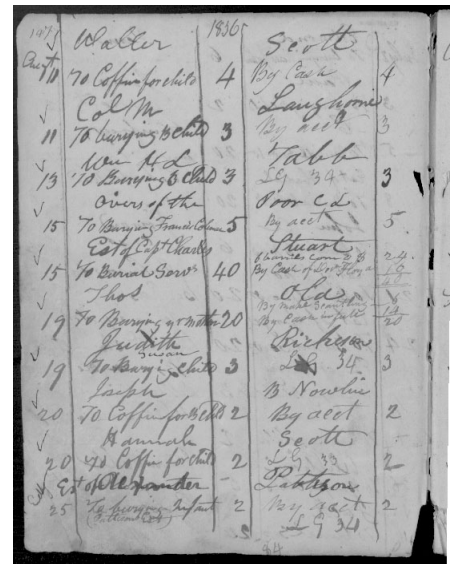 1836
Walter Scott
Augt 11 To Coffin for child 4 By Cash 4
Col M Langhorne
11 To burying B Child 3 By acct 3
Wm H L Tabb
13 To Burying B Child 3 LG 34 3
Overs of the Poor
15 To Burying Francis 5 By acct 5
Est of Capt Charles Stuart
15 To Burial Servs 40 By Cash
Thos Old
19 To Burying yr Mother 20 By Cash 20
Judith
Susan
19 To Burying child 3 LG 35 3
Joseph B Nowlin
20 To Coffin for B Child 2 By acct 2
Hannah Scott
20 To Coffin for child 2 LG 2
Est of Alexander Patteson
25 To Burying Infant 2 By acct 2
LG 34